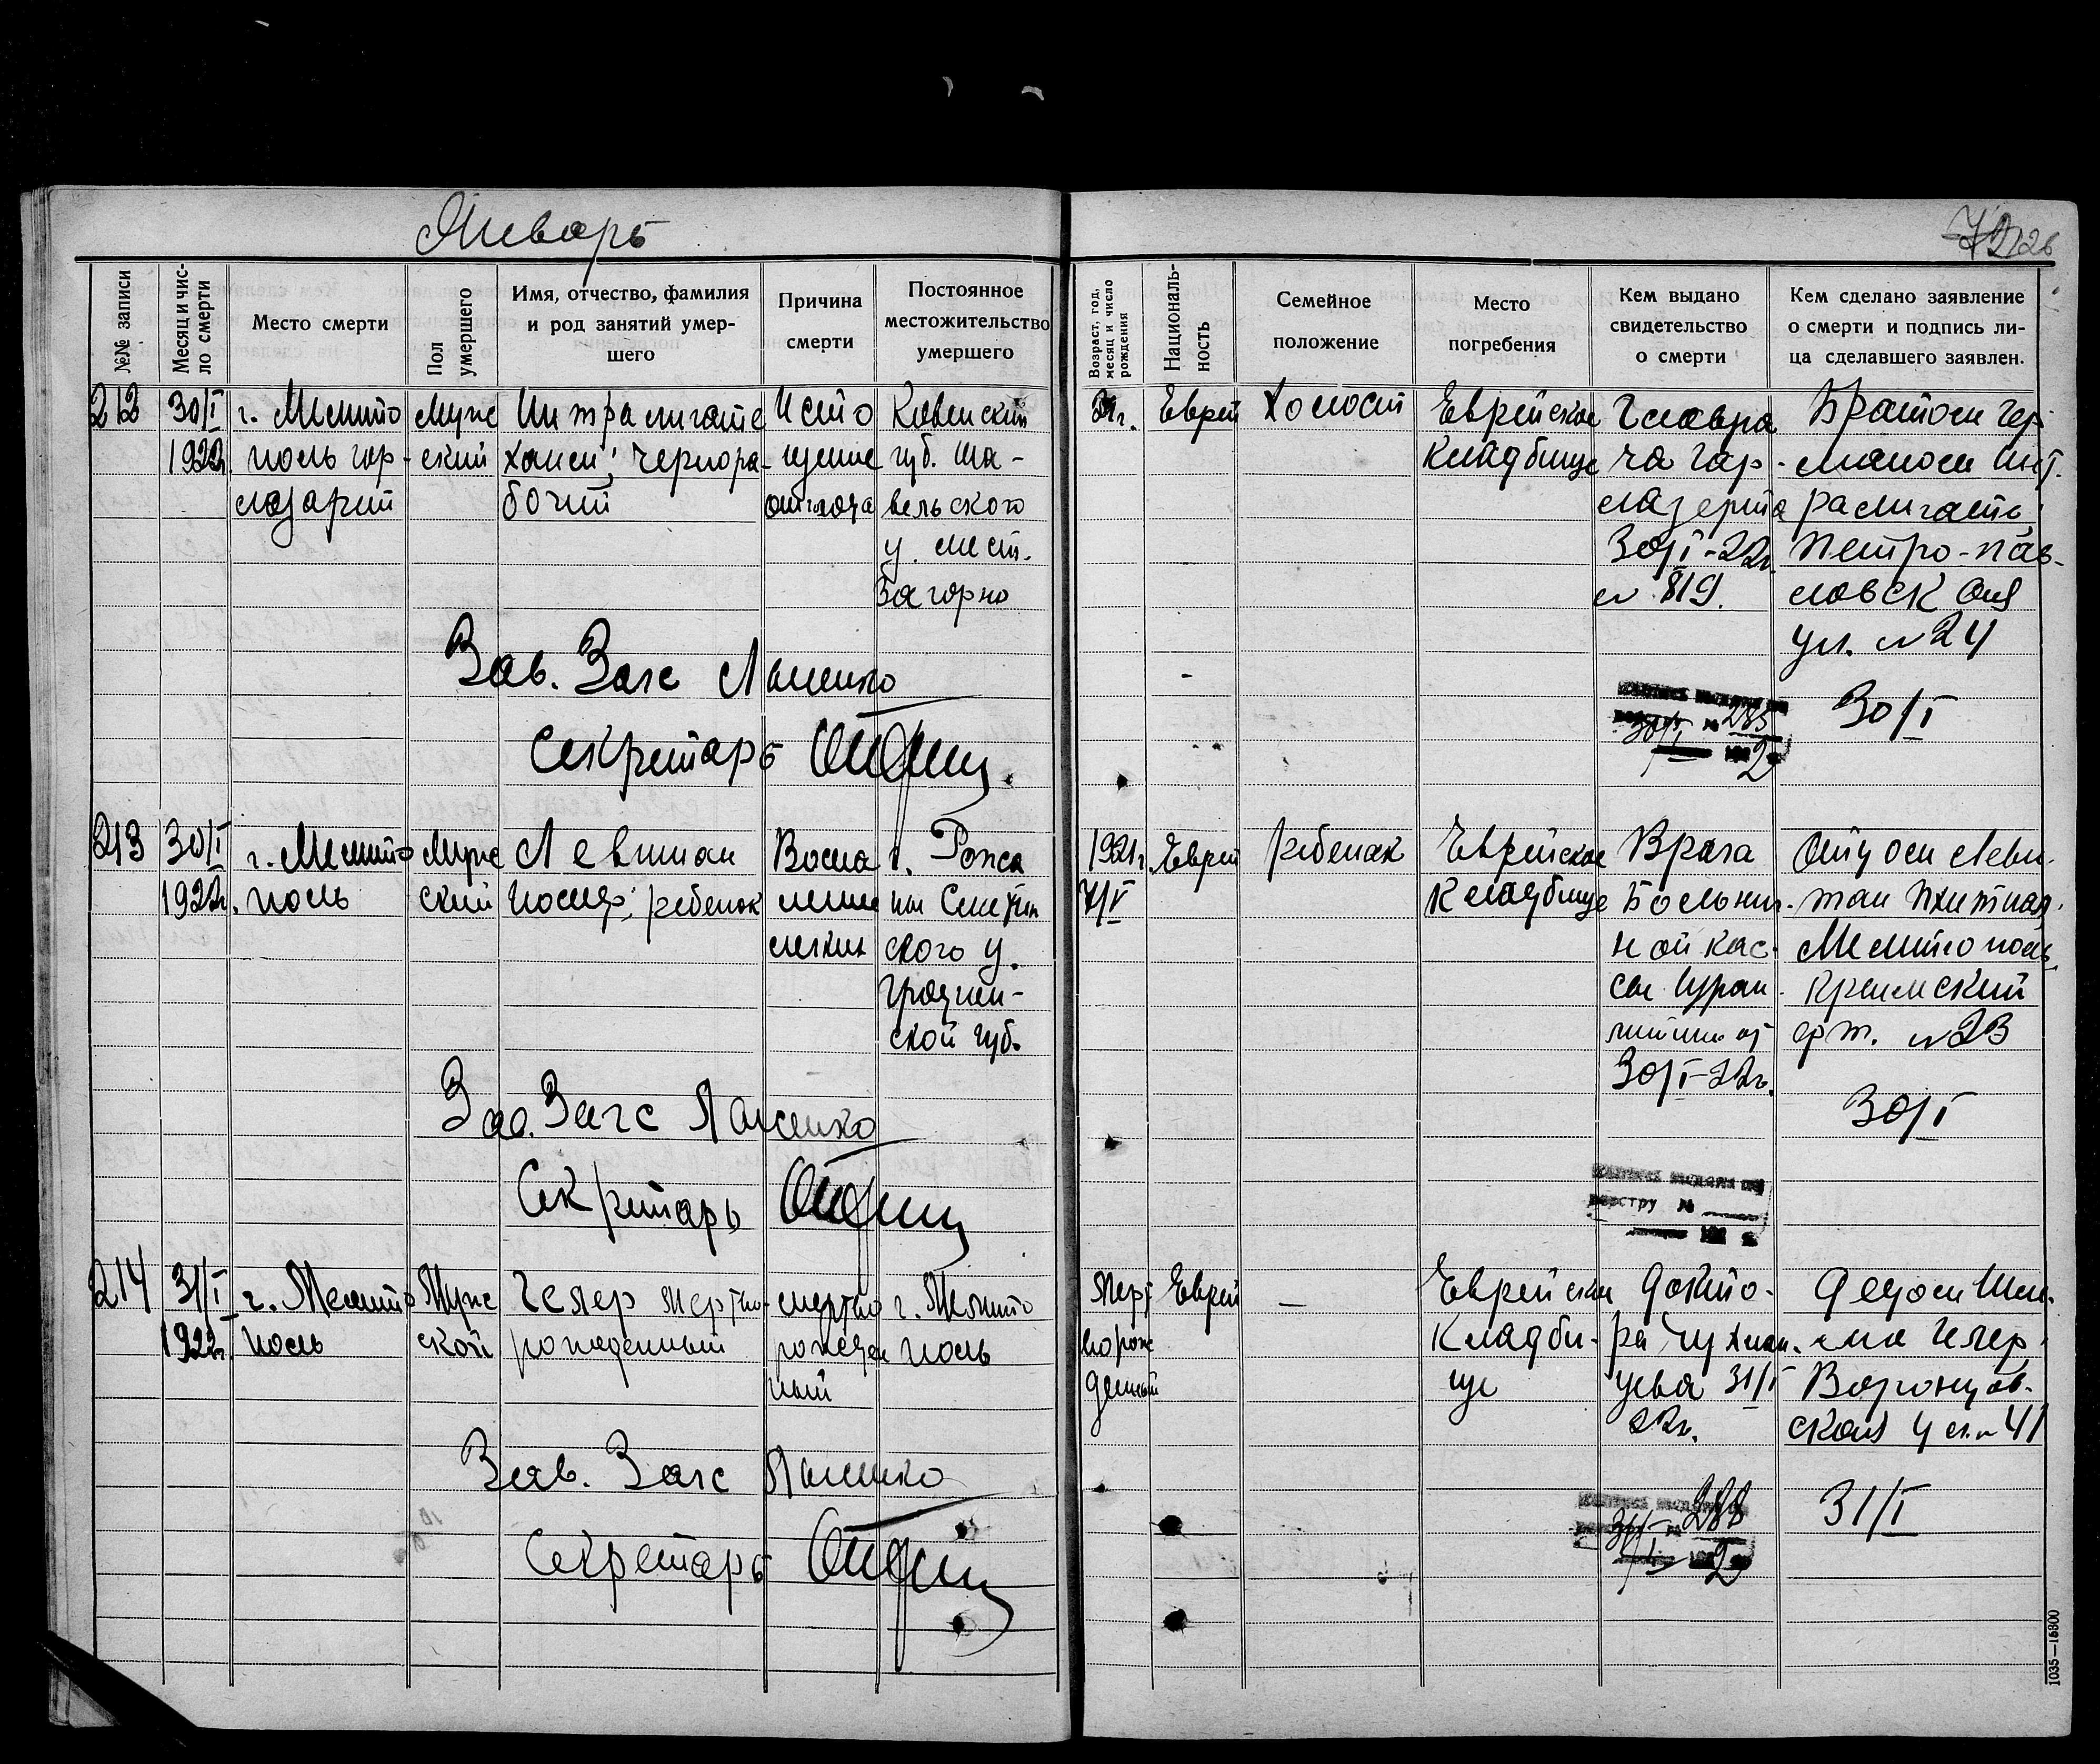 Январь
126
№№ записи
Месяц и чис-
ло смерти
Место смерти
Пол
умершего
Имя, отчество, фамилия
и род занятий умер-
шего
Причина
смерти
Постоянное
местожительство
умершего
Возраст, год,
месяц и число
рождения
Националь-
ность
Семейное
положение
Место
погребения
Кем выдано
свидетельство
о смерти
Кем сделано заявление
о смерти и подпись ли-
ца сделавшего заявлен.
212
30/I
1922г.
г. Мелито
поль гор-
лазарит
Муж
ский
Интралигато
Хаим; чернора-
бочий
Исто
щение
от голода
Ковенский
губ. Ша-
вельского
у. мест.
Загорно
Еврей
Холост
Еврейское
Кладбище
Главвра
ча гор-
лазерита
30/I-22г.
№ 819.
Братом Гер-
маном Инт-
ралигато,
Петро-пав-
ловск ая
ул. №24
30/I
Зав. Загс
Секретарь
285
213
30/I
1922г.
г. Мелито
поль
Муж
ский
Левитан
Иосиф; ребенок
Воспа
ление
легких
г. Рожа
ны Слоним
ского у.
Гроднен-
ской губ.
1921г.
7/V
Еврей
ребенак
Еврейское
Кладбище
Врача
Больнич-
ной кас-
сы
30/I-22г.
Отцом Леви-
тан
Мелитополь
Крымский
№23
30/I
Зав. Загс
Секретарь
реестру №
214
31/I
1922г.
г. Мелито
поль
Муж
ской
Гелер мертво-
рожденный
мертво
рожден
ный
г. Мелито
поль
Мерт
ворож
денный
Еврей
—
Еврейское
Кладби-
ще
Докто-
ра
31/I
22г.
Дедом Шле-
ма Гелер
Воронцов-
ская ул. № 41
31/I
Зав. Загс
Секретарь
288
1035—15800